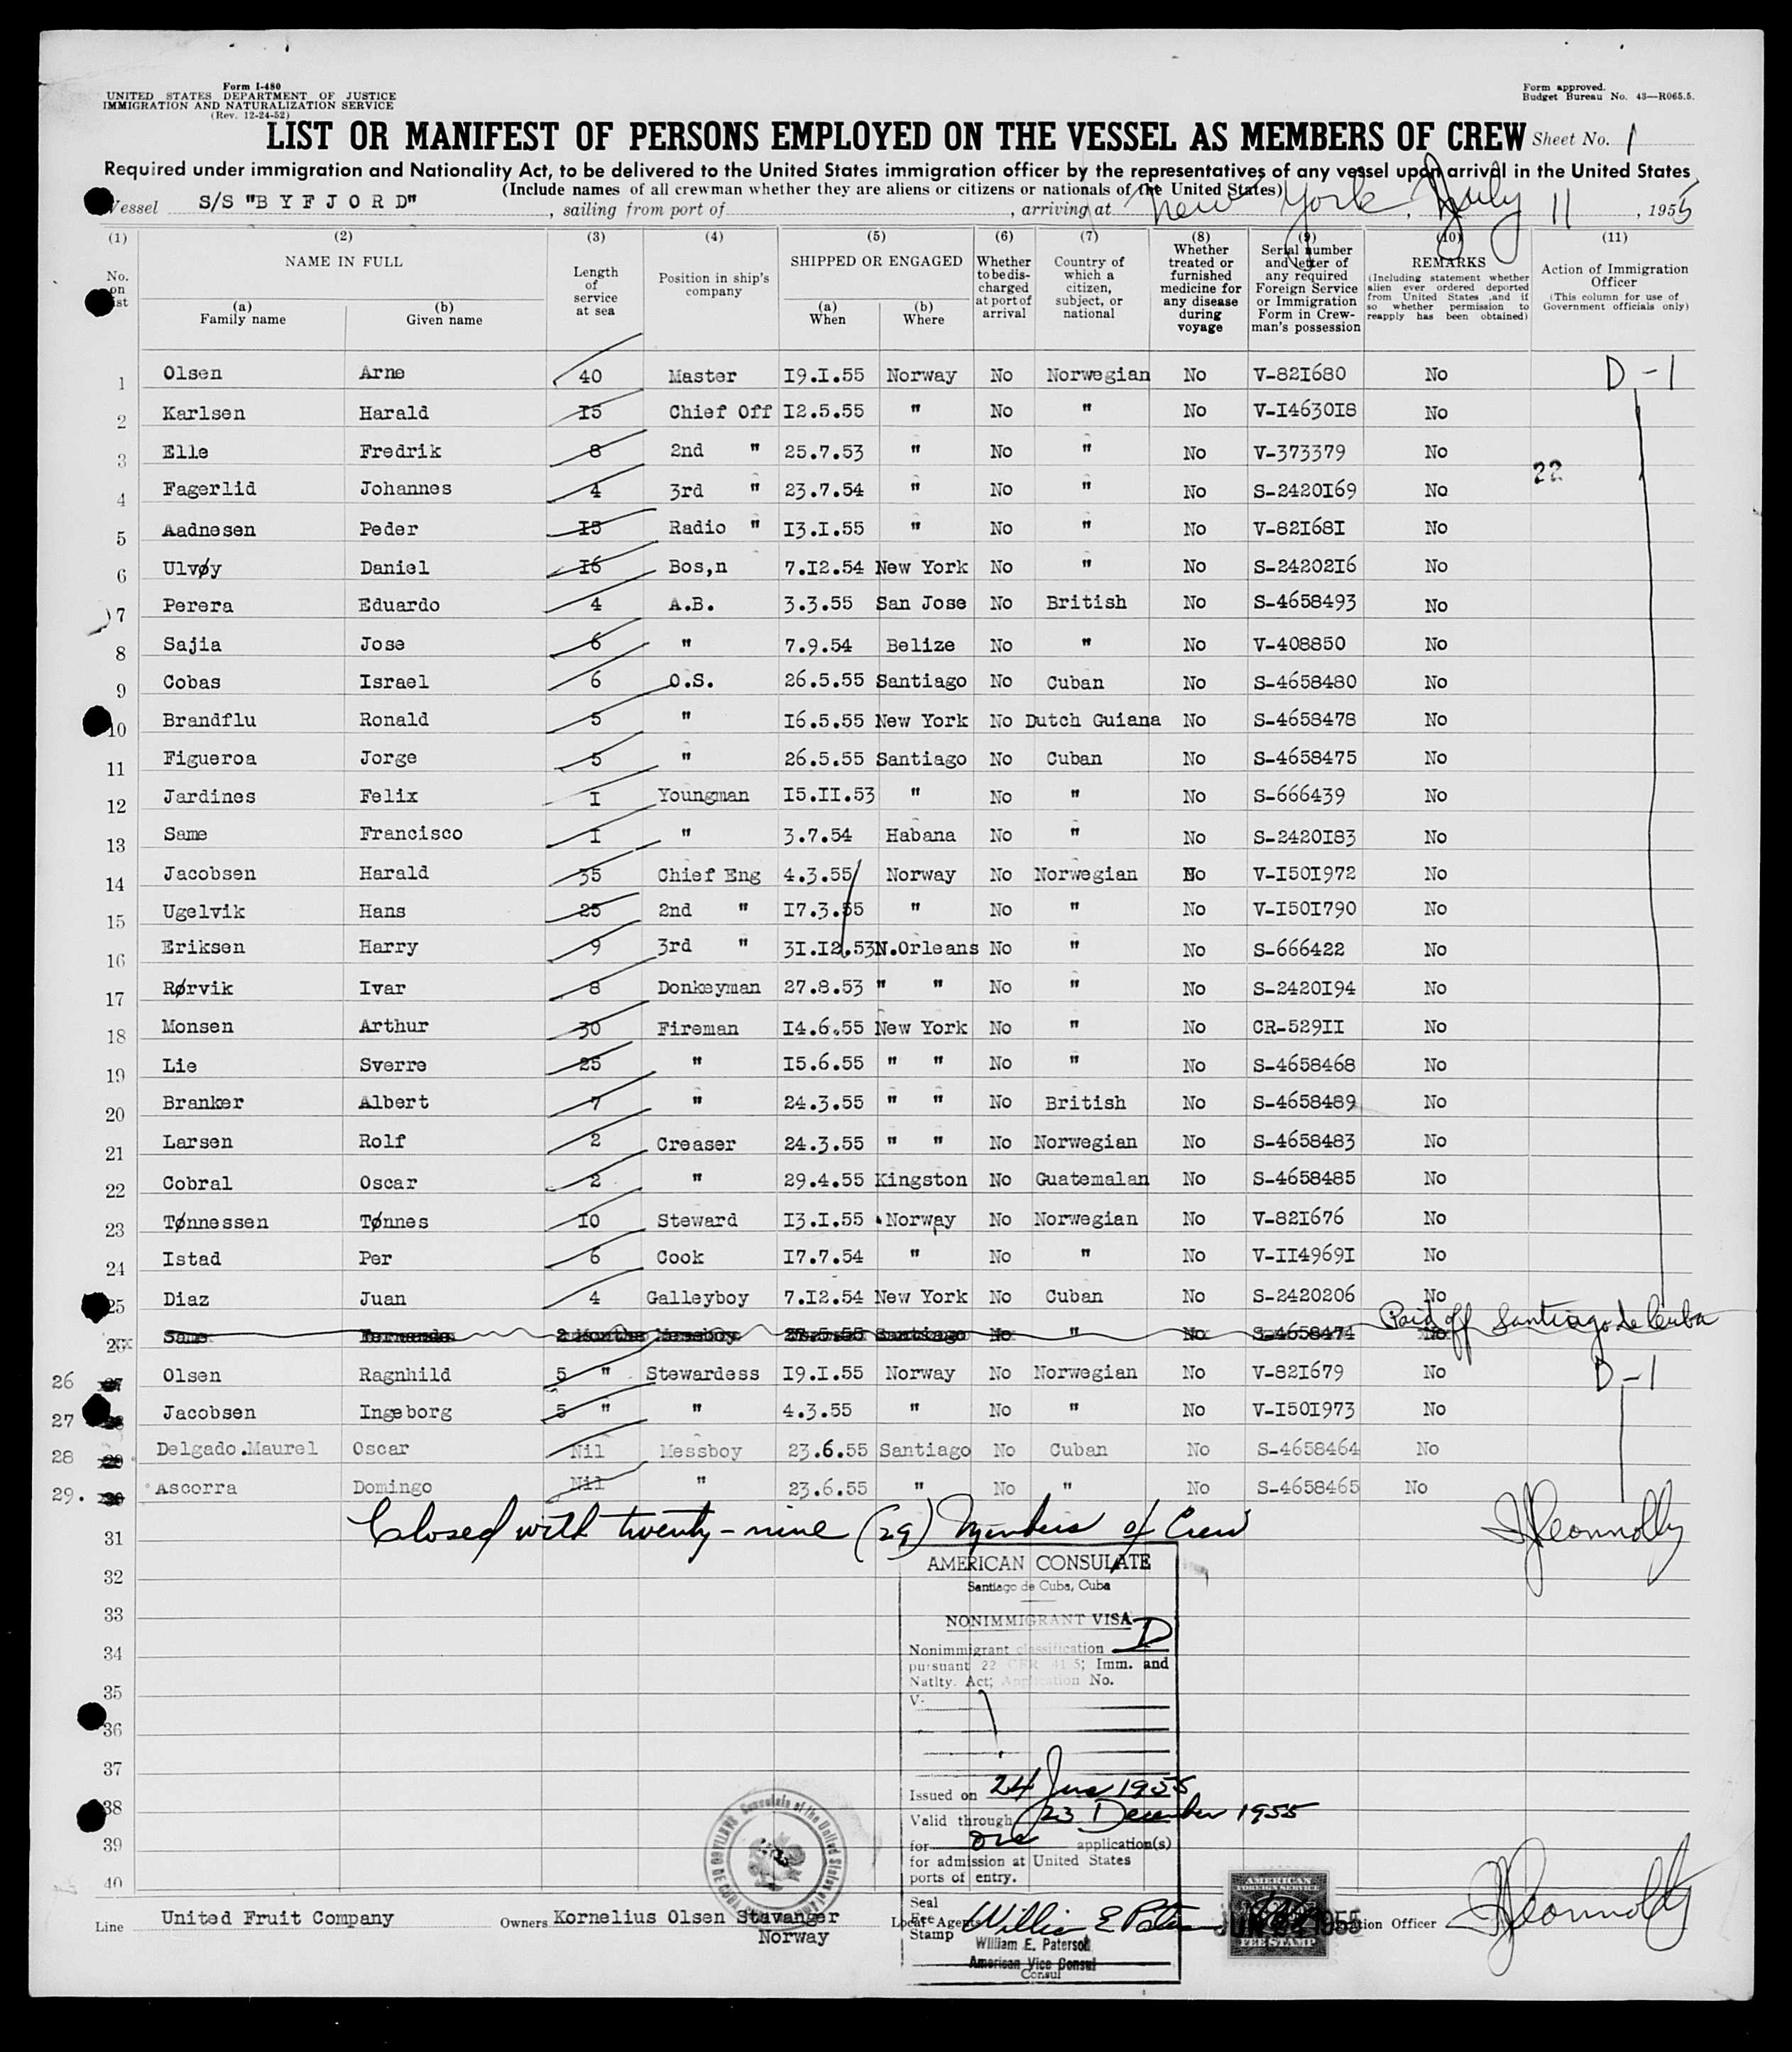 Form I-480
UNITED STATES DEPARTMENT OF JUSTICE
IMMIGRATION AND NATURALIZATION SERVICE
(Rev. 12-24-52)
Form approved.
Budget Bureau No. 43—R065.5.
LIST OR MANIFEST OF PERSONS EMPLOYED ON THE VESSEL AS MEMBERS OF CREW Sheet No. 1
Required under immigration and Nationality Act, to be delivered to the United States immigration officer by the representatives of any vessel upon arrival in the United States
(Include names of all crewman whether they are aliens or citizens or nationals of the United States)
Vessel S/S "BYFJORD", sailing from port of , arriving at New York, July 11, 1955
(1) (2) (3) (4) (5) (6) (7) (8) (9) (10) (11)
No. on list
NAME IN FULL
(a) Family name
(b) Given name
Length of service at sea
Position in ship's company
SHIPPED OR ENGAGED
(a) When
(b) Where
Whether to be discharged at port of arrival
Country of which a citizen, subject, or national
Whether treated or furnished medicine for any disease during voyage
Serial number and letter of any required Foreign Service or Immigration Form in Crewman's possession
REMARKS
(Including statement whether alien ever ordered deported from United States ,and if so whether permission to reapply has been obtained)
Action of Immigration Officer
(This column for use of Government officials only)
1 Olsen Arne 40 Master 19.I.55 Norway No Norwegian No V-82I680 No D-1
2 Karlsen Harald I5 Chief Off I2.5.55 " No " No V-I4630I8 No
3 Elle Fredrik 8 2nd " 25.7.53 " No " No V-373379 No 22
4 Fagerlid Johannes 4 3rd " 23.7.54 " No " No S-2420I69 No
5 Aadnesen Peder I5 Radio " I3.I.55 " No " No V-82I68I No
6 Ulvøy Daniel I6 Bos,n 7.I2.54 New York No " No S-24202I6 No
7 Perera Eduardo 4 A.B. 3.3.55 San Jose No British No S-4658493 No
8 Sajia Jose 6 " 7.9.54 Belize No " No V-408850 No
9 Cobas Israel 6 O.S. 26.5.55 Santiago No Cuban No S-4658480 No
10 Brandflu Ronald 5 " I6.5.55 New York No Dutch Guiana No S-4658478 No
11 Figueroa Jorge 5 " 26.5.55 Santiago No Cuban No S-4658475 No
12 Jardines Felix I Youngman I5.II.53 " No " No S-666439 No
13 Same Francisco I " 3.7.54 Habana No " No S-2420I83 No
14 Jacobsen Harald 35 Chief Eng 4.3.55 Norway No Norwegian No V-I50I972 No
15 Ugelvik Hans 25 2nd " I7.3.55 " No " No V-I50I790 No
16 Eriksen Harry 9 3rd " 3I.I2.53 N.Orleans No " No S-666422 No
17 Rørvik Ivar 8 Donkeyman 27.8.53 " " No " No S-2420I94 No
18 Monsen Arthur 30 Fireman I4.6.55 New York No " No CR-529II No
19 Lie Sverre 25 " I5.6.55 " " No " No S-4658468 No
20 Branker Albert 7 " 24.3.55 " " No British No S-4658489 No
21 Larsen Rolf 2 Creaser 24.3.55 " " No Norwegian No S-4658483 No
22 Cobral Oscar 2 " 29.4.55 Kingston No Guatemalan No S-4658485 No
23 Tønnessen Tønnes I0 Steward I3.I.55 Norway No Norwegian No V-82I676 No
24 Istad Per 6 Cook I7.7.54 " No " No V-II4969I No
25 Diaz Juan 4 Galleyboy 7.I2.54 New York No Cuban No S-2420206 No
26 Same Fernando 2 Months Messboy 27.5.55 Santiago No " No S-4658474 No Paid off Santiago de Cuba
26 27 Olsen Ragnhild 5 " Stewardess I9.I.55 Norway No Norwegian No V-82I679 No D-1
27 28 Jacobsen Ingeborg 5 " " 4.3.55 " No " No V-I50I973 No
28 29 Delgado.Maurel Oscar Nil Messboy 23.6.55 Santiago No Cuban No S-4658464 No
29. 30 Ascorra Domingo Nil " 23.6.55 " No " No S-4658465 No
31 Closed with twenty-nine (29) Members of Crew JJConnolly
32
33
34
35
36
37
38
39
40
AMERICAN CONSULATE
Santiago de Cuba, Cuba
NONIMMIGRANT VISA
Nonimmigrant classification D
pursuant 22 CFR 41.5; Imm. and
Natlty. Act; Application No.
V-
Issued on 24 June 1955
Valid through 23 December 1955
for one application(s)
for admission at United States
ports of entry.
Seal
Fee
Stamp
William E. Paterson
William E. Paterson
American Vice Consul
Consul
AMERICAN
FOREIGN SERVICE
FEE STAMP
Line United Fruit Company Owners Kornelius Olsen Stavanger
Norway
Local Agents
Officer JJConnolly